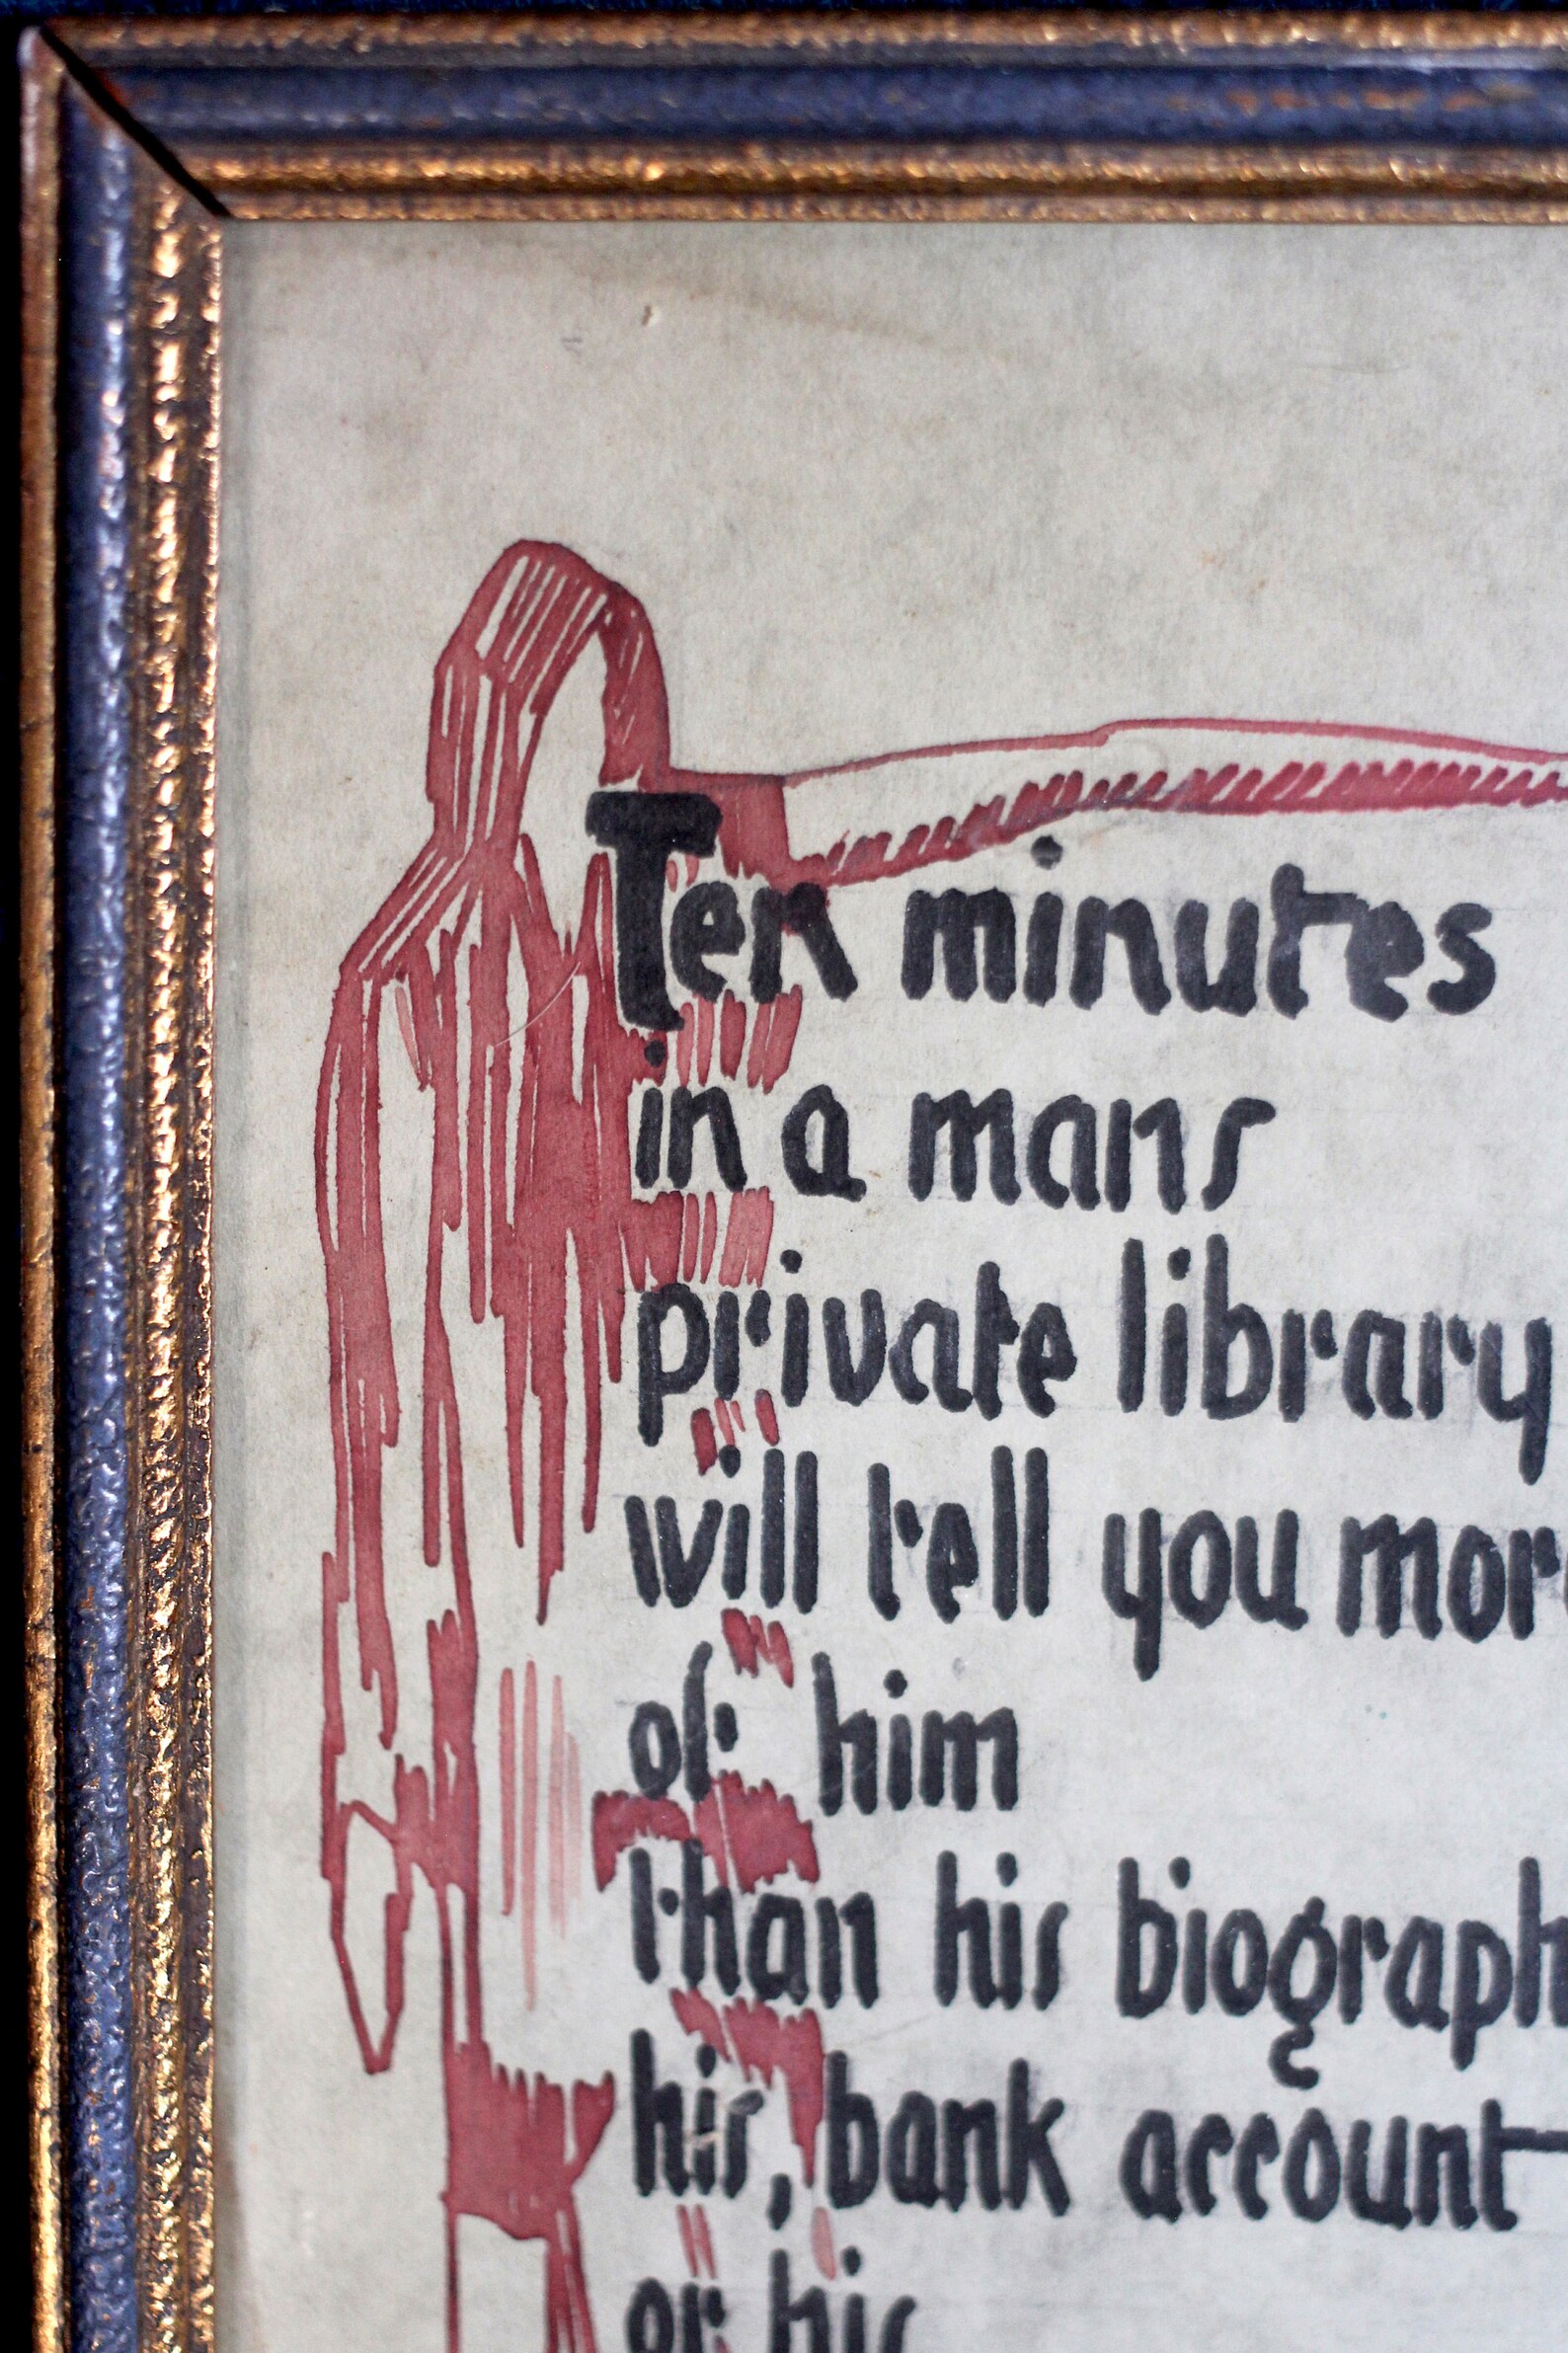 Ten minutes
in a mans
private library
will tell you more
of him
than his biograph
his, bank account
or his